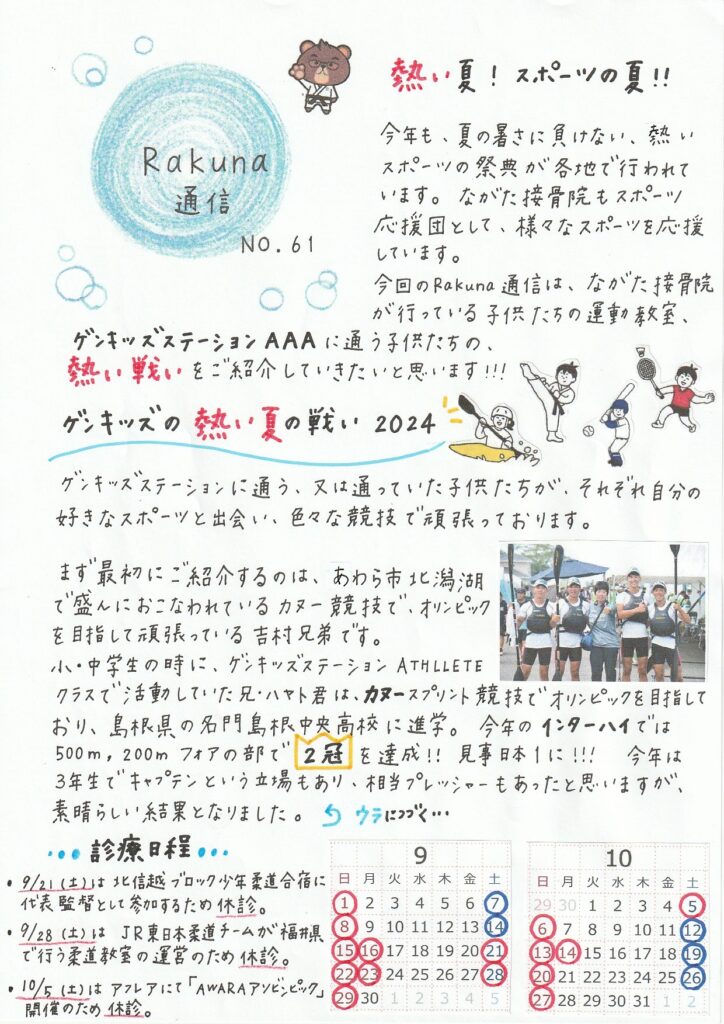 Rakuna
通信
NO.61
熱い夏！スポーツの夏!!
今年も、夏の暑さに負けない、熱い
スポーツの祭典が各地で行われて
います。ながた接骨院もスポーツ
応援団として、様々なスポーツを応援
しています。
今回のRakuna通信は、ながた接骨院
が行っている子供たちの運動教室、
ゲンキッズステーションAAAに通う子供たちの、
熱い戦いをご紹介していきたいと思います!!!
ゲンキッズの熱い夏の戦い 2024
ゲンキッズステーションに通う、又は通っていた子供たちが、それぞれ自分の
好きなスポーツと出会い、色々な競技で頑張っております。
まず最初にご紹介するのは、あわら市北潟湖
で盛んにおこなわれているカヌー競技で、オリンピック
を目指して頑張っている吉村兄弟です。
小・中学生の時に、ゲンキッズステーションATHLLETE
クラスで活動していた兄・ハヤト君は、カヌースプリント競技でオリンピックを目指して
おり、島根県の名門島根中央高校に進学。今年のインターハイでは
500m, 200mフォアの部で 2冠 を達成!! 見事日本1に!!! 今年は
3年生でキャプテンという立場もあり、相当プレッシャーもあったと思いますが、
素晴らしい結果となりました。 ウラにつづく…
•••診療日程•••
• 9/21(土)は北信越ブロック少年柔道合宿に
代表監督として参加するため休診。
• 9/28(土)は JR東日本柔道チームが福井県
で行う柔道教室の運営のため休診。
• 10/5(土)はアフレアにて「AWARAアソビンピック」
開催のため休診。
9
日 月 火 水 木 金 土
1 2 3 4 5 6 7
8 9 10 11 12 13 14
15 16 17 18 19 20 21
22 23 24 25 26 27 28
29 30 1 2 3 4 5
10
日 月 火 水 木 金 土
29 30 1 2 3 4 5
6 7 8 9 10 11 12
13 14 15 16 17 18 19
20 21 22 23 24 25 26
27 28 29 30 31 1 2